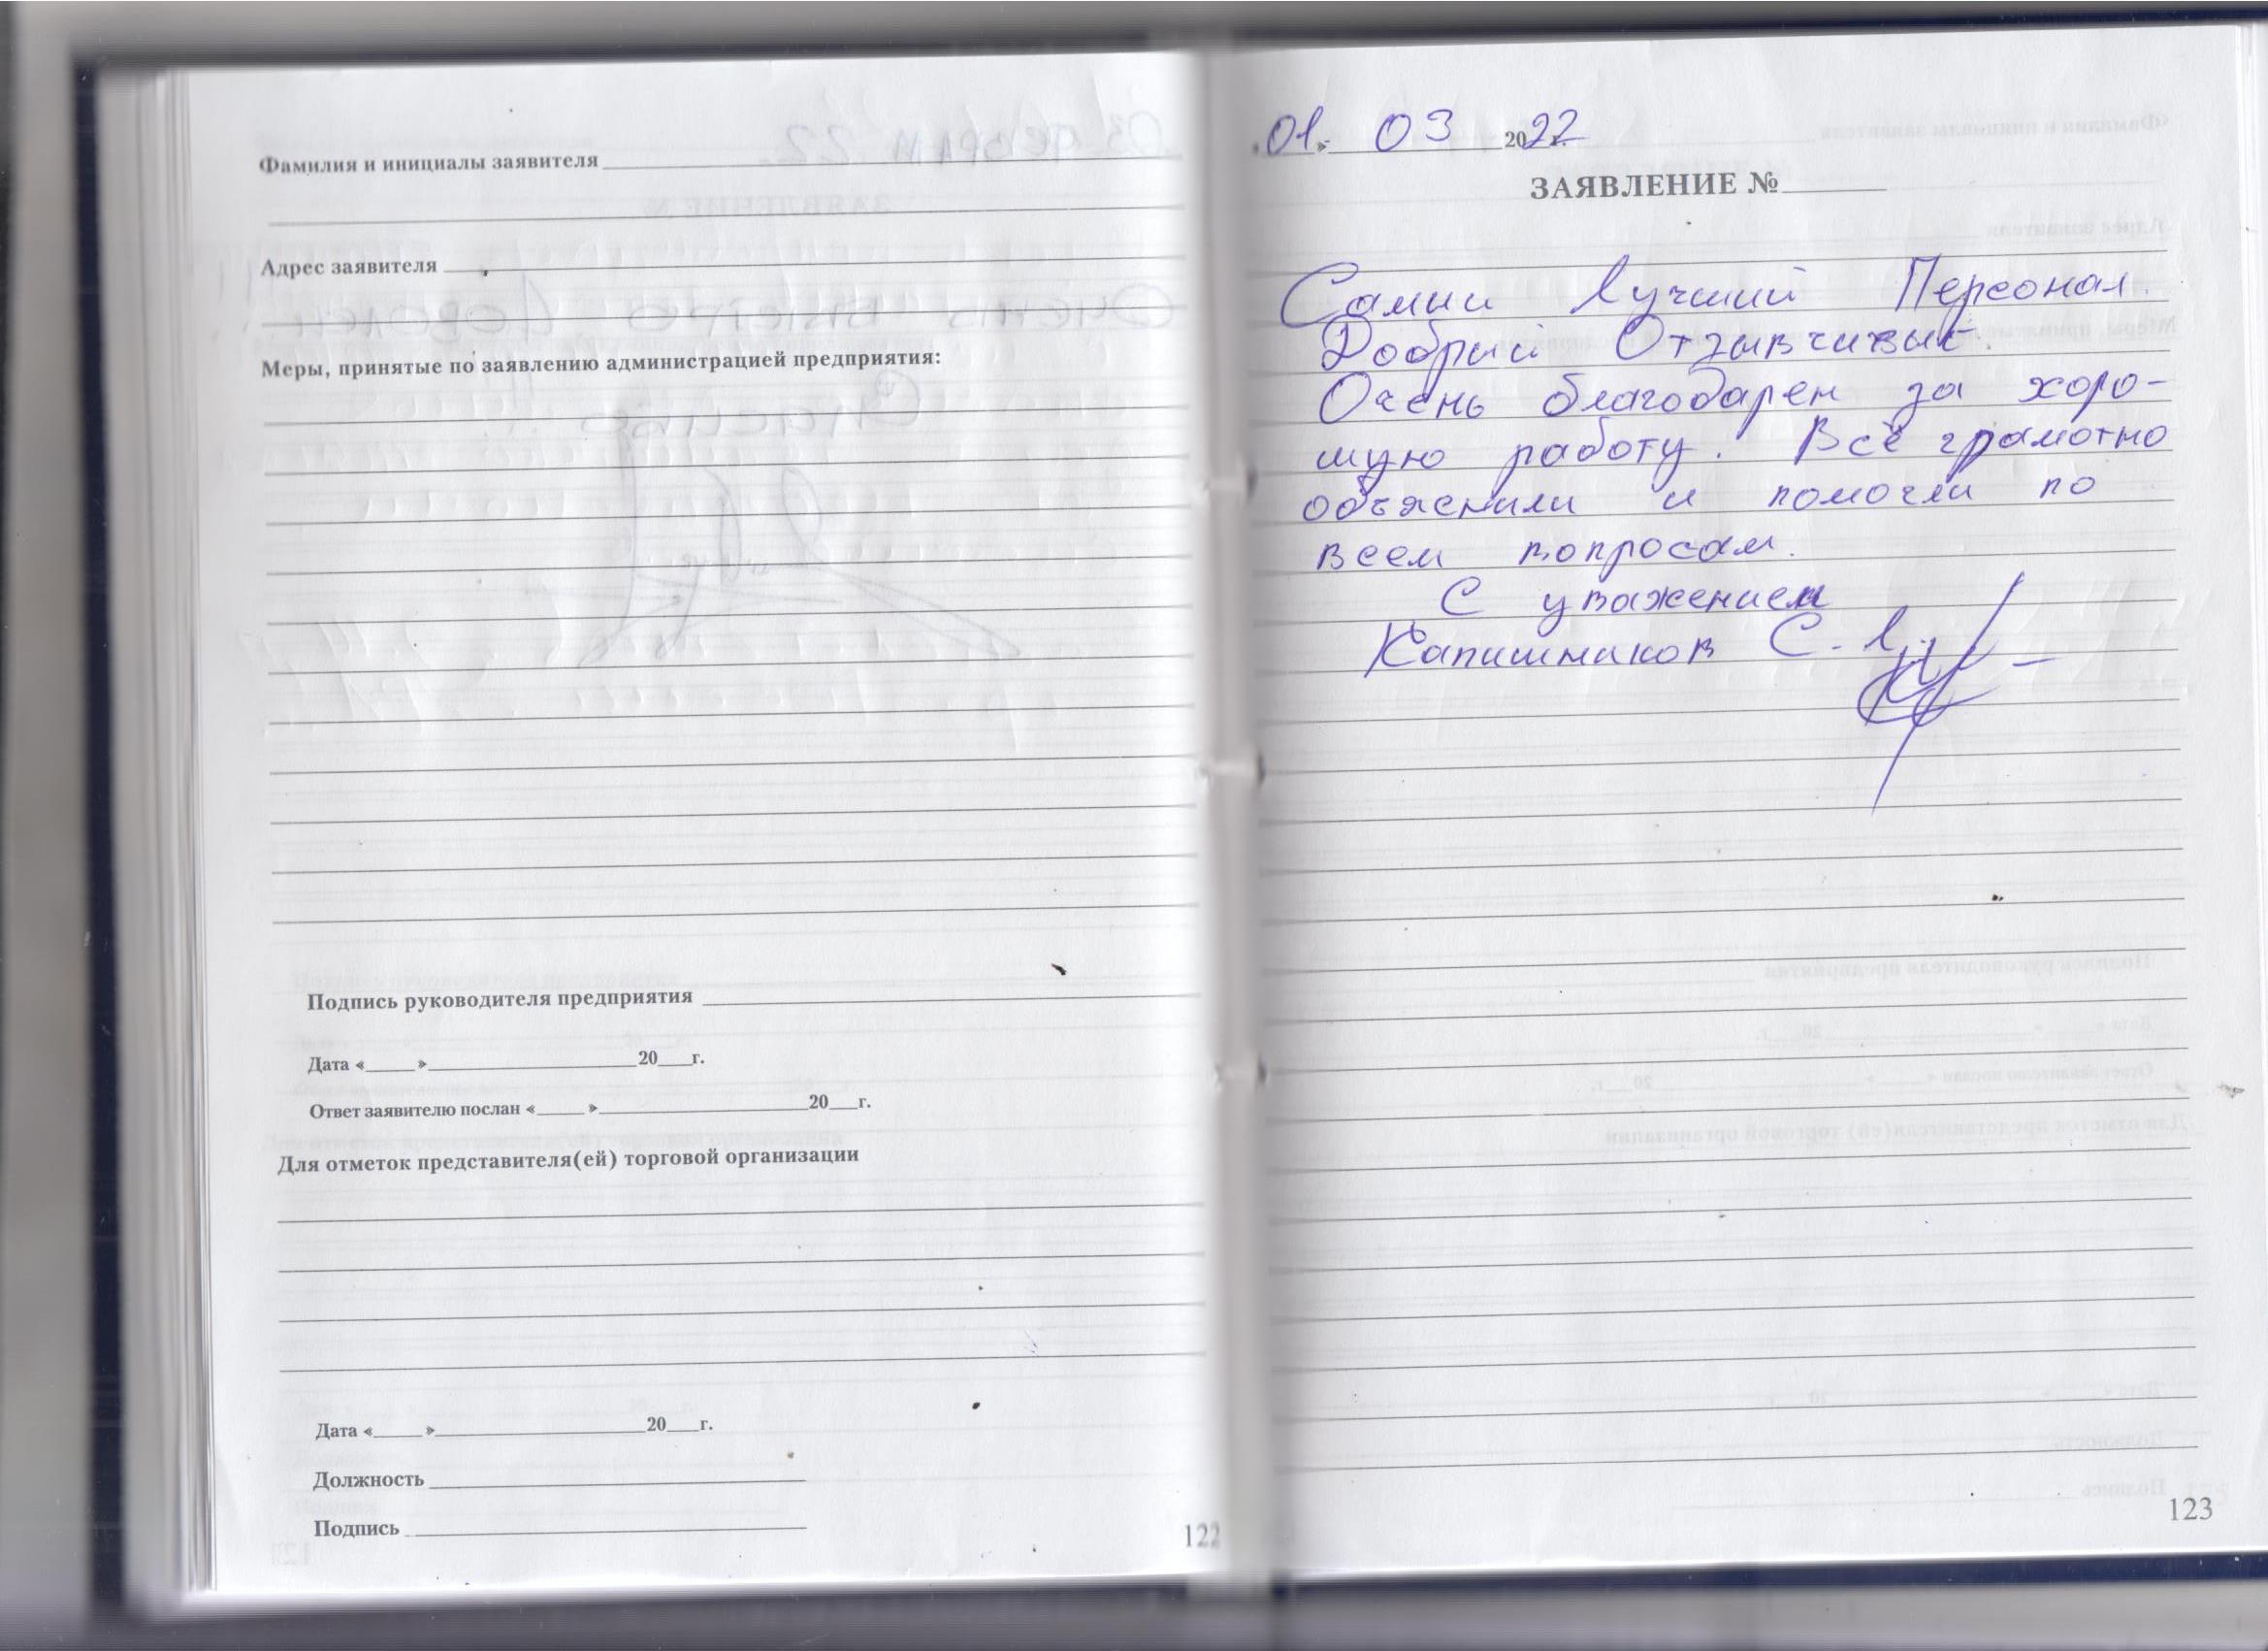 Фамилия и инициалы заявителя
Адрес заявителя
Меры, принятые по заявлению администрацией предприятия:
Подпись руководителя предприятия
Дата «____» ________ 20__г.
Ответ заявителю послан «____» ________ 20__г.
Для отметок представителя(ей) торговой организации
Дата «____» ________ 20__г.
Должность
Подпись
122
01» 03 2022 г.
ЗАЯВЛЕНИЕ №
Самый Лучший Персонал.
Добрый Отзывчивый.
Очень благодарен за хоро-
шую работу. Всё грамотно
объяснили и помогли по
всем вопросам.
С уважением
Капишников С. Л.
123